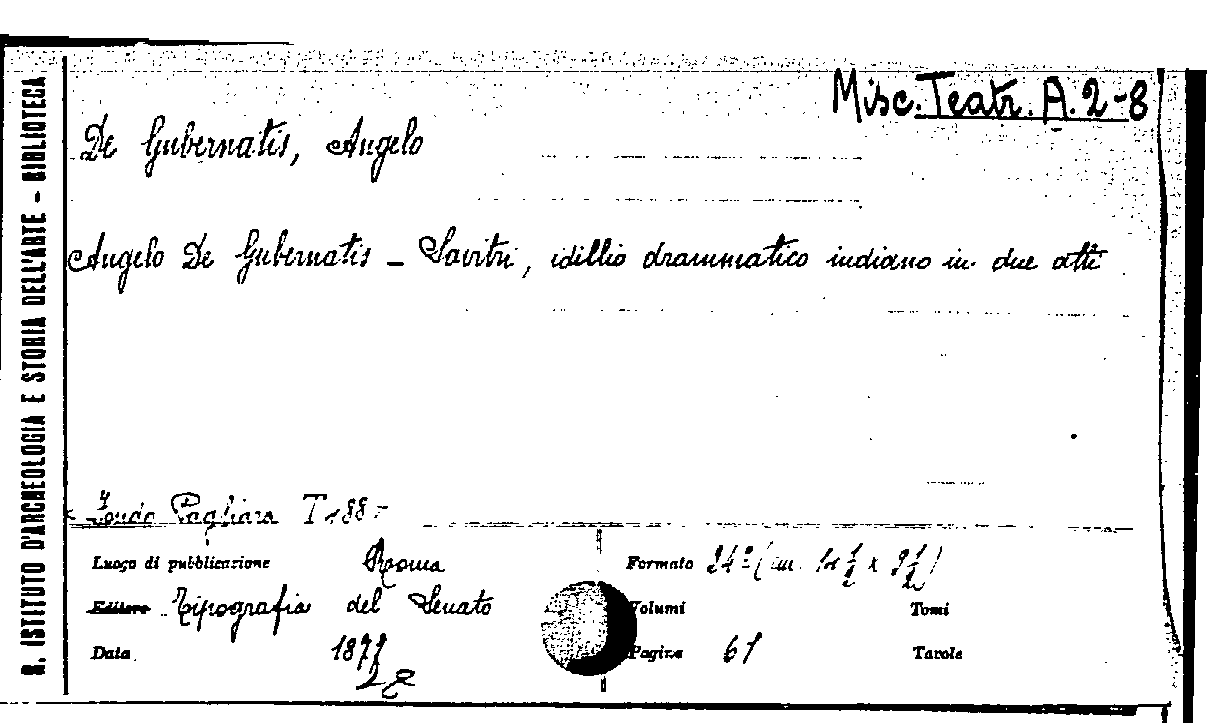 Misc. Teatr. A. 2-8
De Gubernatis, Angelo
Angelo De Gubernatis - Savitri, idillio drammatico indiano in due atti
Fondo Pagliara T. 88
Luogo di pubblicazione Roma
Formato 24º (cm.
Editore Tipografia del Senato
Volumi
Tomi
Data 1877
Pagine 61
Tavole
R. ISTITUTO D'ARCHEOLOGIA E STORIA DELL'ARTE - BIBLIOTECA